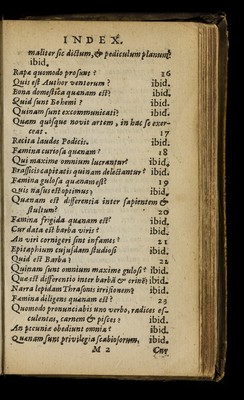 INDEX.
maliter sic dictum, & pediculum planum?
ibid.
Rapa quomodo prosint? 16
Quis est Author ventorum? ibid.
Bona domestica quænam est? ibid.
Quid sunt Bohemi? ibid.
Quinam sunt excommunicati? ibid.
Quam quisque novit artem, in hac se exer-
ceat. 17
Recita laudes Poditis. ibid.
Fæmina curiosa quænam? 18
Qui maximè omnium lucrantur? ibid.
Brassicis capitatis quinam delectantur? ibid.
Fæmina gulosa quænam est? 19
Quis nasus est optimus? ibid.
Quænam est differentia inter sapientem &
stultum? 20
Fæmina frigida quænam est? ibid.
Cur data est barba viris? ibid.
An viri cornigeri sint infames? 21
Epitaphium cujusdam studiosi ibid.
Quid est Barba? 21
Quinam sunt omnium maximè gulosi? ibid.
Quæ est differentia inter barbā & crinē? ibid.
Narra lepidam Thrasonis irrisionem? ibid.
Fæmina diligens quænam est? 23
Quomodo pronunciabis uno verbo, radices es-
culentas, carnem & pisces? ibid.
An pecuniæ obediunt omnia? ibid.
Quænam sunt privilegia scabiosorum. ibid.
M 2 Cur